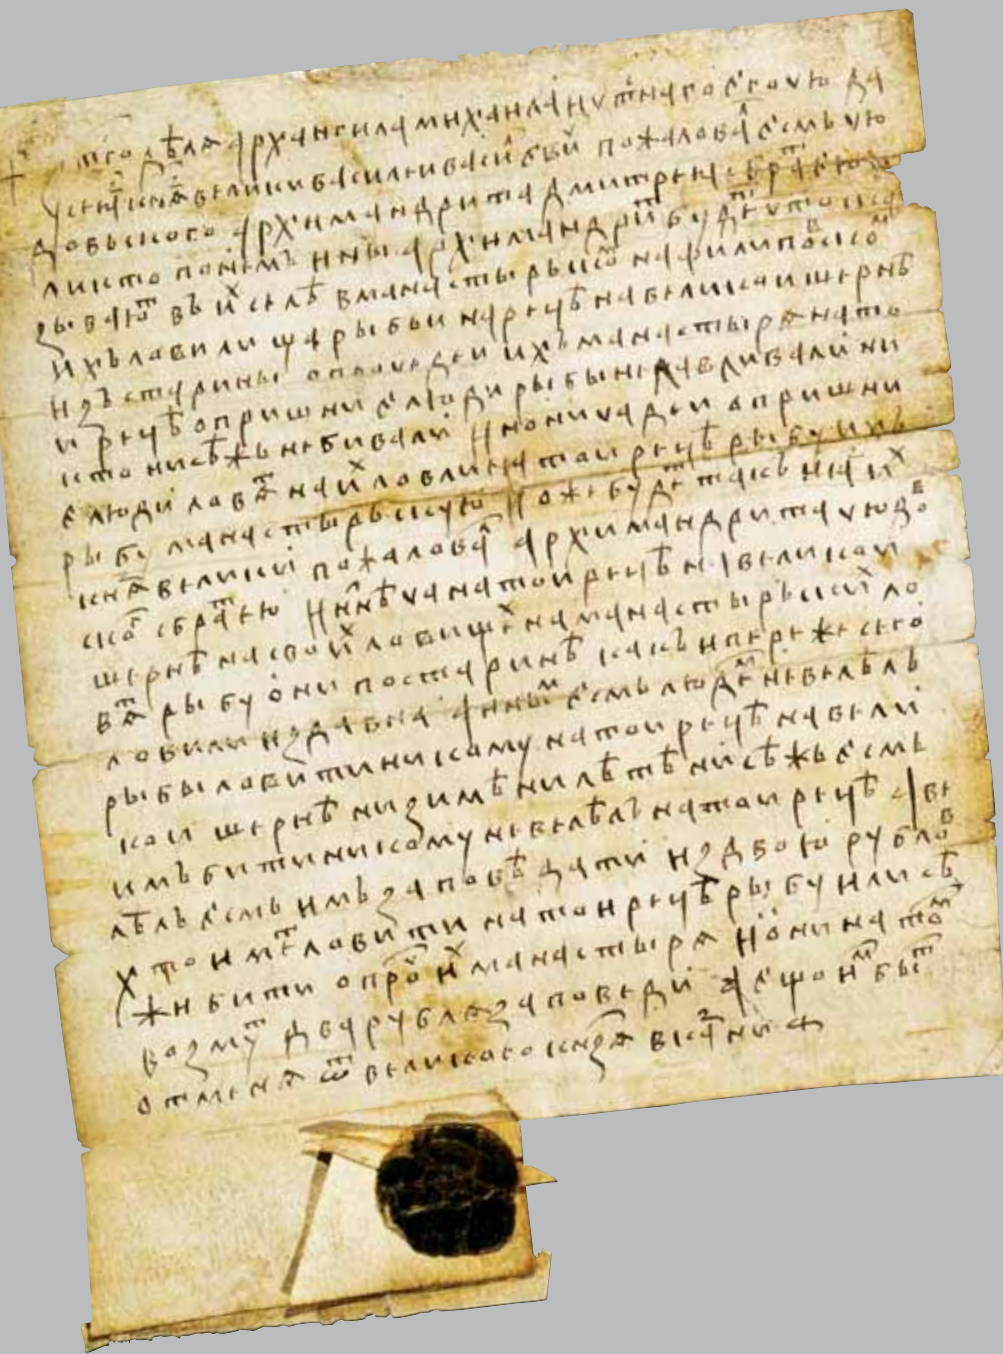 мсⷭ҇го дѣлѧ архангила михаила и чⷭ҇тнаго ѥго чюда
се ꙗⷥ кнѧⷥ великии василеи васиⷧевⷱи пожаловаⷧ есмь чю
довьского архимандрита дмитреꙗ с браⷮею
или кто по неⷨ ины архимандриⷮ будеⷮ
ꙁываюⷮ въ иⷯ селѣ в манастырьскоⷨ на филиповскоⷨ
ихъ ловили щ а рыбы и на рецѣ на великои шернѣ
иꙁъ старины опрочь деи ихъ манастырѧ на тои
и рецѣ опришние люди рыбы не лавливали ни
кто ни сѣжь не бивали и нонича деи опришни
е люди ловѧⷮ на иⷯ ловли на тои рецѣ рыбу ихъ
рыбу манастырьскую и оже будеⷮ такъ и ꙗ иⷯ
кнѧⷥ великии пожаловаⷧ архимандрита чюдоⷡ
скоⷢ с браⷮею и нн҃ѣча на тои рецѣ на великои
шернѣ на своиⷯ ловищеⷯ на манастырьскиⷯ ло
вѧⷮ рыбу они по старинѣ какъ и переже сего
ловили иꙁдавна а иныⷨ есмь людеⷨ не велѣлъ
рыбы ловити никому на тои рецѣ на вели
кои шернѣ ни ꙁимѣ ни лѣтѣ ни сѣжь есмь
имъ бити никому не велѣлъ на тои рецѣ а ве
лѣлъ есмь имъ ꙁаповѣдати иꙁ двою рублоⷡ
хто имеⷮ ловити на тои рецѣ рыбу или сѣ
жи бити опроⷱ иⷯ манастырѧ и они на тоⷨ
воꙁмуⷮ два рублѧ ꙁаповеди а ещо иⷨ быⷮ
от менѧ ѿ великого кнѧꙁѧ в каⷥни